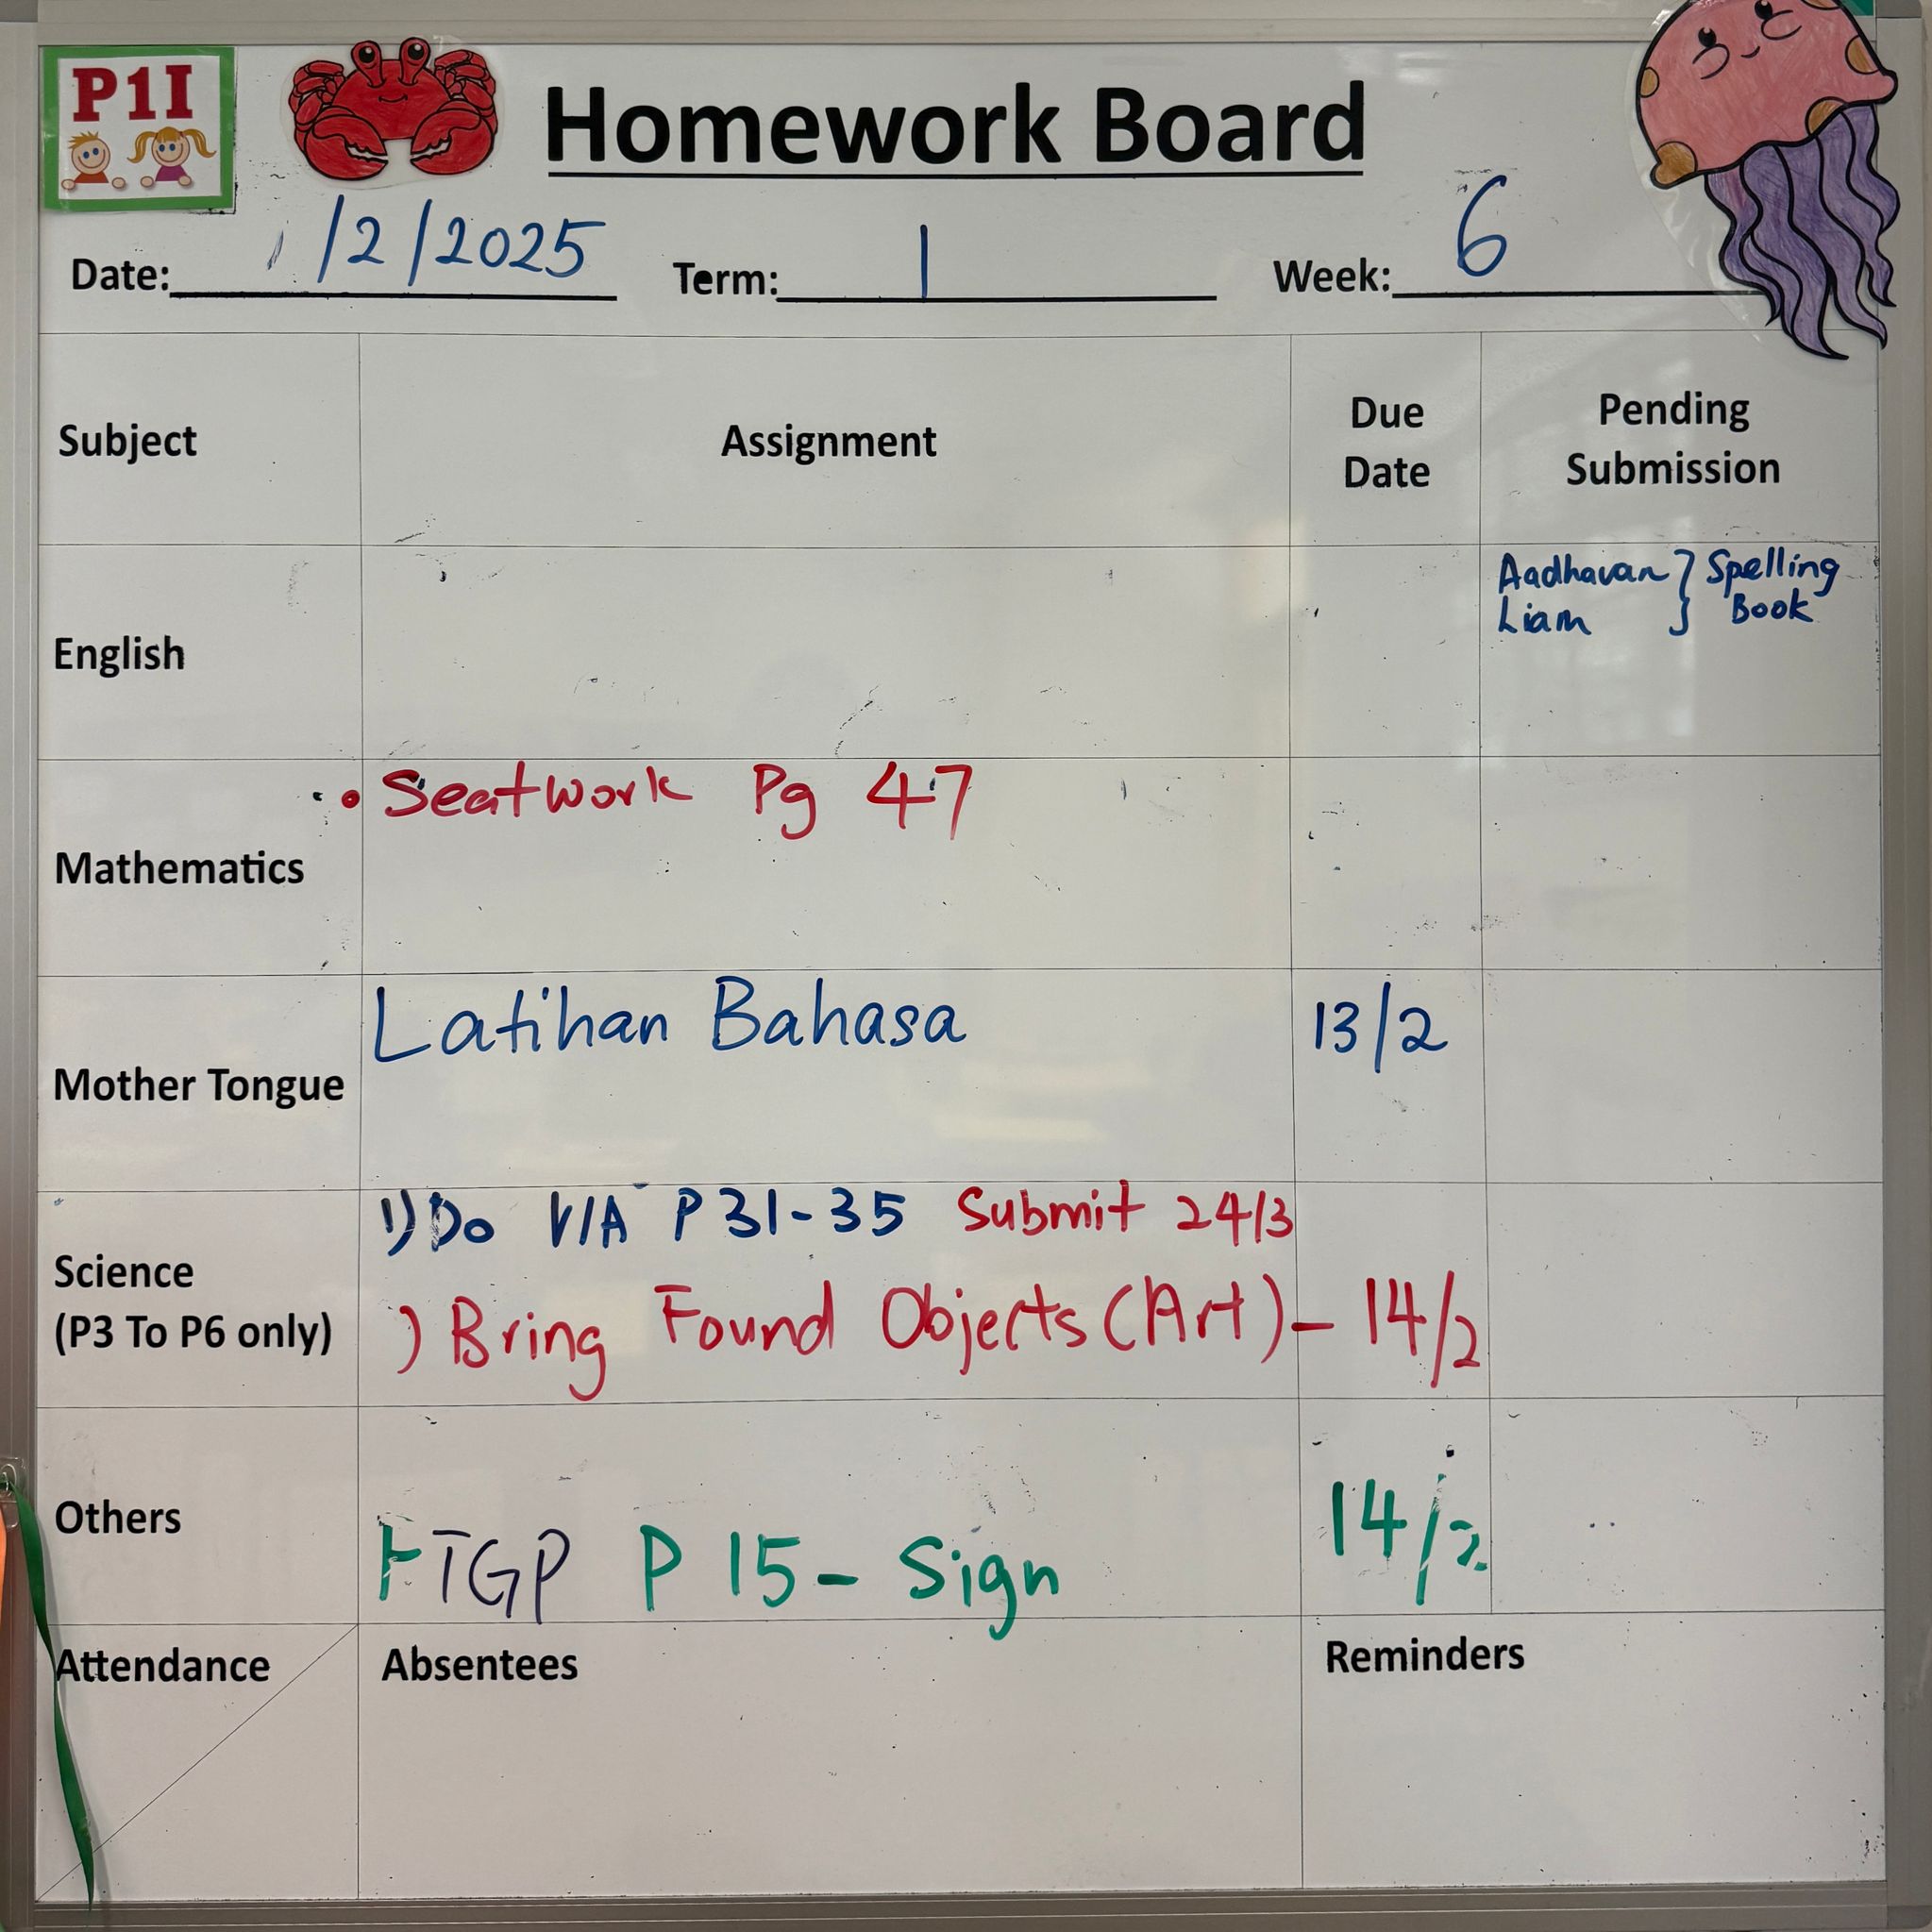 P1I
Homework Board
Date: /2/2025 Term: 1 Week: 6
Subject Assignment Due Date Pending Submission
English Aadhavan } Spelling
Liam } Book
Mathematics • Seatwork Pg 47
Mother Tongue Latihan Bahasa 13/2
Science 1) Do V/A P 31-35 Submit 24/3
(P3 To P6 only) ) Bring Found Objects (Art) - 14/2
Others FTGP P 15 - Sign 14/2
Attendance Absentees Reminders